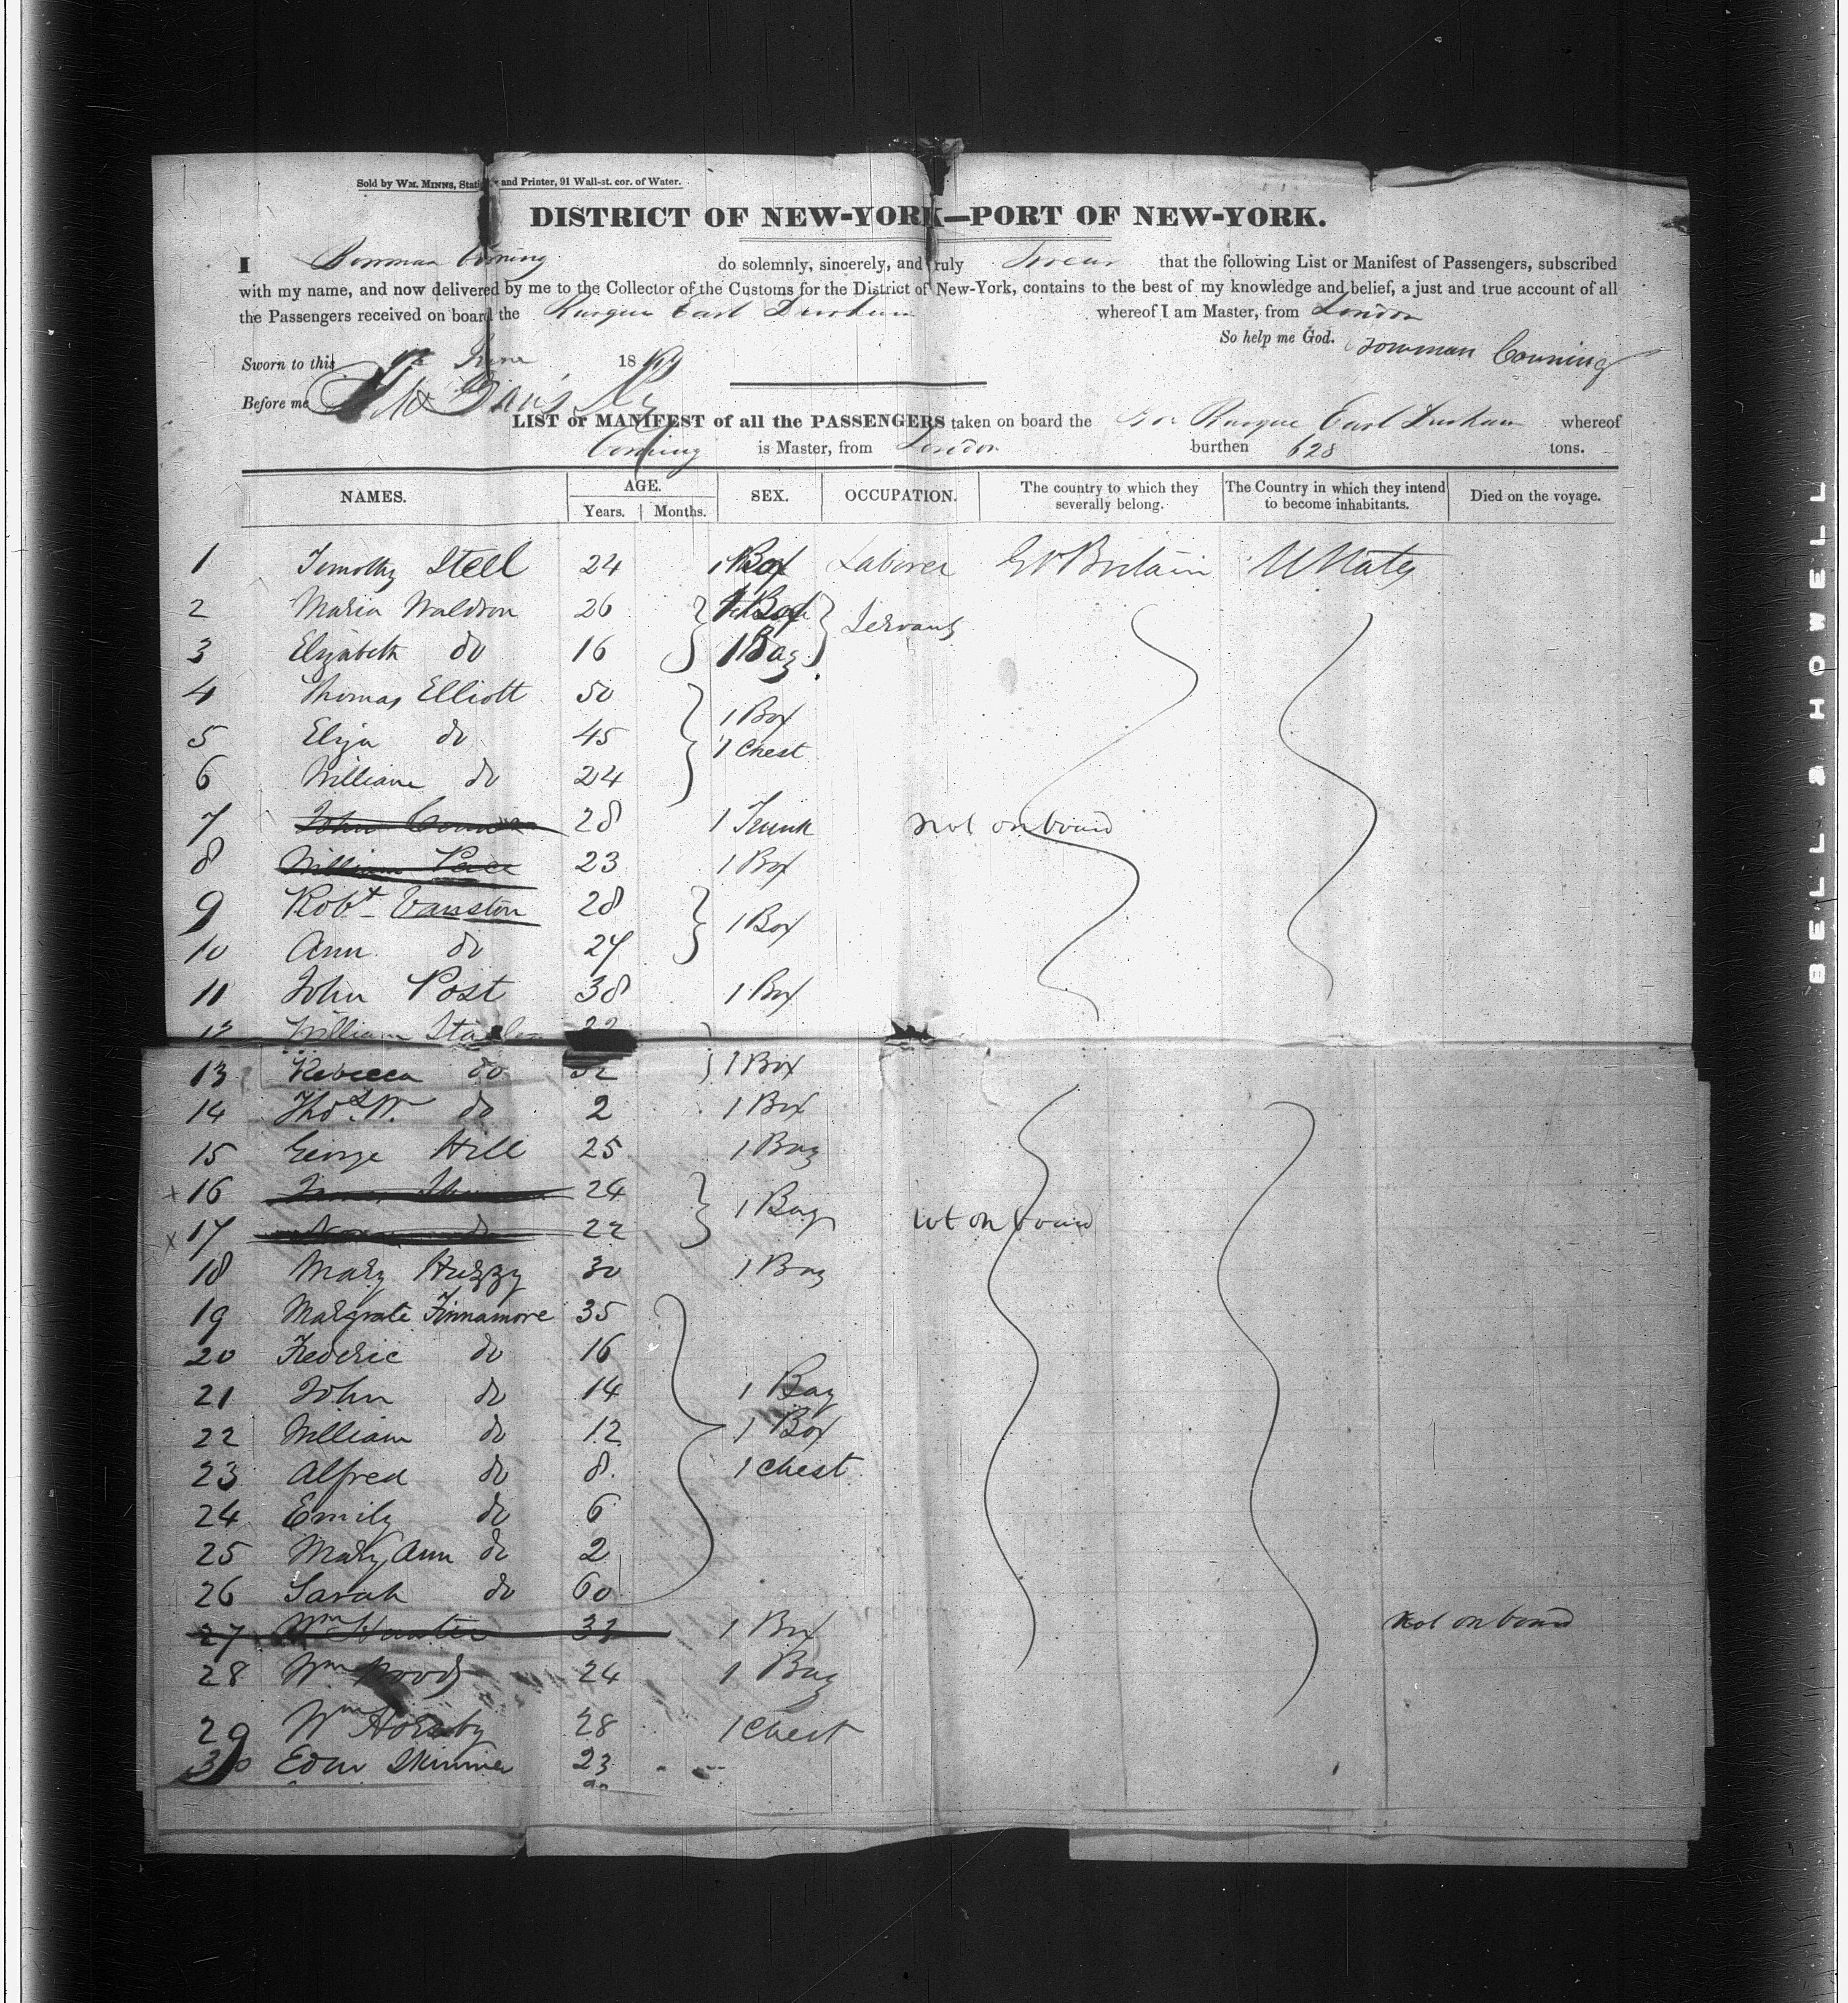 Sold by WM. MINNS, Stati and Printer, 91 Wall-st. cor. of Water.
DISTRICT OF NEW-YORK—PORT OF NEW-YORK.
I Bowman Corning do solemnly, sincerely, and truly Swear that the following List or Manifest of Passengers, subscribed
with my name, and now delivered by me to the Collector of the Customs for the District of New-York, contains to the best of my knowledge and belief, a just and true account of all
the Passengers received on board the Barque Earl Durham whereof I am Master, from London
So help me God. Bowman Corning
Sworn to this June 18
Before me
LIST or MANIFEST of all the PASSENGERS taken on board the Barque Earl Durham whereof
Corning is Master, from London burthen 628 tons.
NAMES. AGE. Years. Months. SEX. OCCUPATION. The country to which they severally belong. The Country in which they intend to become inhabitants. Died on the voyage.
1 Timothy Steel 24 1 Box Laborer Gt Britain U States
2 Maria Waldron 26 1 Box Servants
3 Elizabeth do 16 1 Bag
4 Thomas Elliott 50 1 Box
5 Eliza do 45 1 Chest
6 William do 24
7 John 28 1 Trunk not on board
8 William 23 1 Box
9 Robt Vanston 28 1 Box
10 Ann do 27
11 John Post 38 1 Box
12 William 22
13 Rebecca do 32 1 Box
14 Thos W. do 2 1 Box
15 George Hill 25 1 Bag
x 16 24 1 Bag
x 17 do 22 not on board
18 Mary Huzzy 30 1 Bag
19 Margrate Finnamore 35
20 Frederic do 16
21 John do 14 1 Bag
22 William do 12 1 Box
23 Alfred do 8 1 Chest
24 Emily do 6
25 Mary Ann do 2
26 Sarah do 60
27 Wm Hunter 32 1 Box not on board
28 Wm Woods 24 1 Bag
29 Wm Hornsby 28 1 Chest
30 Edw Skinner 23
BELL & HOWELL